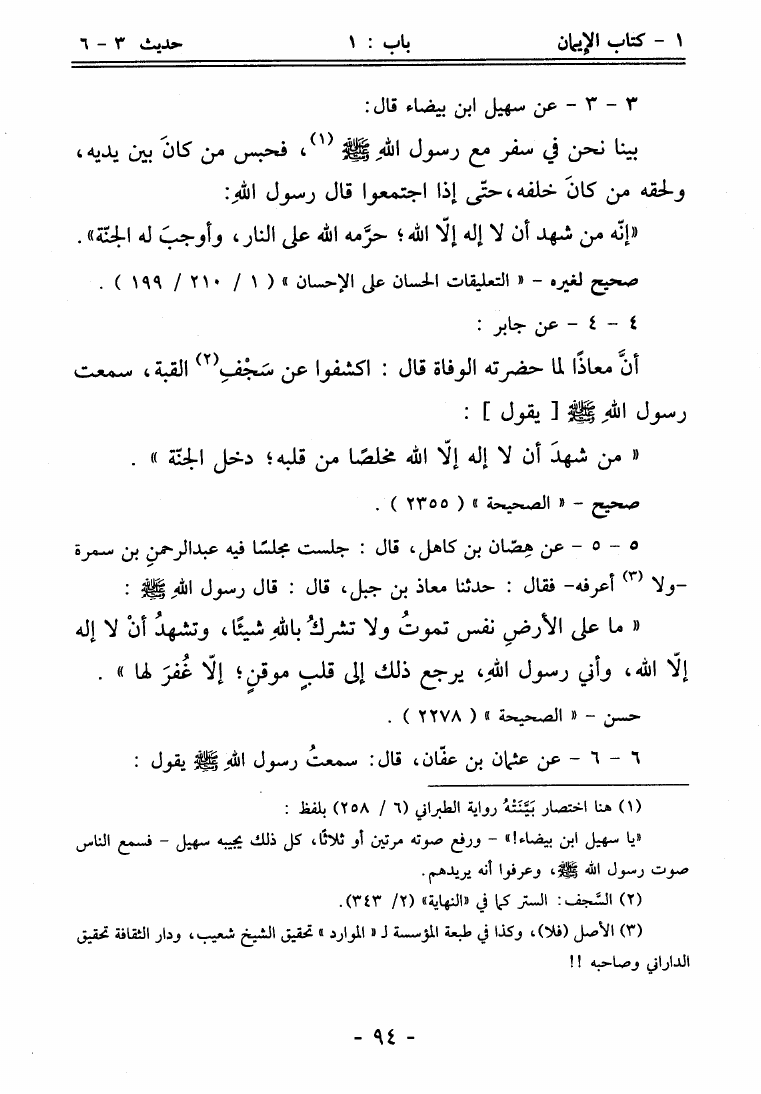 ١ - كتاب الإيمان باب : ١ حديث ٣ - ٦
٣ - ٣ - عن سهيل ابن بيضاء قال:
بينا نحن في سفر مع رسول اللهِ ﷺ (١)، فحبس من كانَ بين يديه،
ولحقه من كانَ خلفه، حتّى إذا اجتمعوا قال رسول اللهِ:
«إنّه من شهد أن لا إله إلّا الله؛ حرَّمه الله على النار، وأوجبَ له الجنّة».
صحيح لغيره - « التعليقات الحسان على الإحسان » ( ١ / ٢١٠ / ١٩٩ ) .
٤ - ٤ - عن جابر :
أنَّ معاذًا لما حضرته الوفاة قال : اكشفوا عن سَجْفِ(٢) القبة، سمعت
رسول اللهِ ﷺ [ يقول ] :
« من شهدَ أن لا إله إلّا الله مخلصًا من قلبه؛ دخل الجنّة » .
صحيح - « الصحيحة » ( ٢٣٥٥ ) .
٥ - ٥ - عن هِصّان بن كاهل، قال : جلست مجلسًا فيه عبدالرحمنِ بن سمرة
-ولا (٣) أعرفه- فقال : حدثنا معاذ بن جبل، قال : قال رسول اللهِ ﷺ :
« ما على الأرضِ نفس تموتُ ولا تشركُ باللهِ شيئًا، وتشهدُ أنْ لا إله
إلّا الله، وأني رسول اللهِ، يرجع ذلك إلى قلبٍ موقنٍ؛ إلّا غُفرَ لها » .
حسن - « الصحيحة » ( ٢٢٧٨ ) .
٦ - ٦ - عن عثمان بن عفّان، قال: سمعتُ رسول اللهِ ﷺ يقول :
(١) هنا اختصار بَيَّنَتْهُ رواية الطبراني (٦ / ٢٥٨) بلفظ :
«يا سهيل ابن بيضاء!» - ورفع صوته مرتين أو ثلاثًا، كل ذلك يجيبه سهيل - فسمع الناس
صوت رسول الله ﷺ، وعرفوا أنه يريدهم.
(٢) السَّجف: الستر كما في «النهاية» (٢/ ٣٤٣).
(٣) الأصل (فلا)، وكذا في طبعة المؤسسة لـ « الموارد » تحقيق الشيخ شعيب، ودار الثقافة تحقيق
الداراني وصاحبه !!
- ٩٤ -